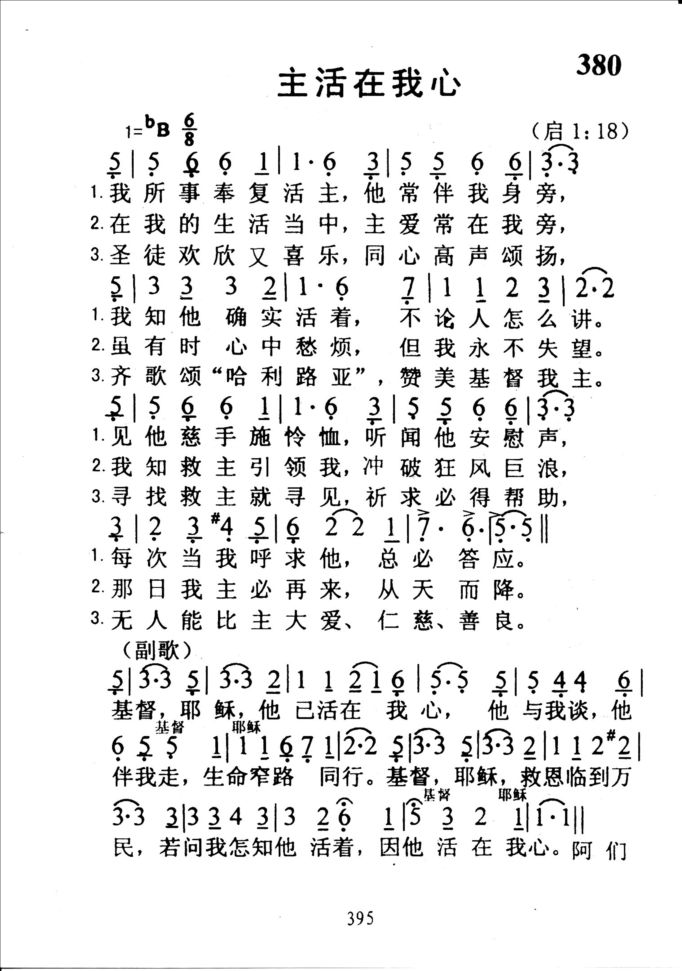 380
主活在我心
1=ᵇB 6/8 （启1:18）
5|5 6 6 1|1·6 3|5 5 6 6|3·3
1.我所事奉复活主，他常伴我身旁，
2.在我的生活当中，主爱常在我旁，
3.圣徒欢欣又喜乐，同心高声颂扬，
5|3 3 3 2|1·6 7|1 1 2 3|2·2
1.我知他 确实活着， 不论人怎么讲。
2.虽有时 心中愁烦， 但我永不失望。
3.齐歌颂“哈利路亚”，赞美基督我主。
5|5 6 6 1|1·6 3|5 5 6 6|3·3
1.见他慈手施怜恤，听闻他安慰声，
2.我知救主引领我，冲破狂风巨浪，
3.寻找救主就寻见，祈求必得帮助，
3|2 3 #4 5|6 2 2 1|7· 6·|5·5||
1.每次当我呼求他， 总必 答应。
2.那日我主必再来， 从天 而降。
3.无人能比主大爱、仁慈、善良。
（副歌）
5|3·3 5|3·3 2|1 1 2 1 6|5·5 5|5 4 4 6
基督，耶 稣，他 已活在 我 心， 他 与我谈，他
基督 耶稣
6 5 5 1|1 1 6 7 1|2·2 5|3·3 5|3·3 2|1 1 2 #2
伴我走，生命窄路 同行。基督，耶稣，救恩临到万
基督 耶稣
3·3 3|3 3 4 3|3 2 6 1|5 3 2 1|1·1||
民，若问我怎知他 活着，因他 活 在 我心。阿 们
395